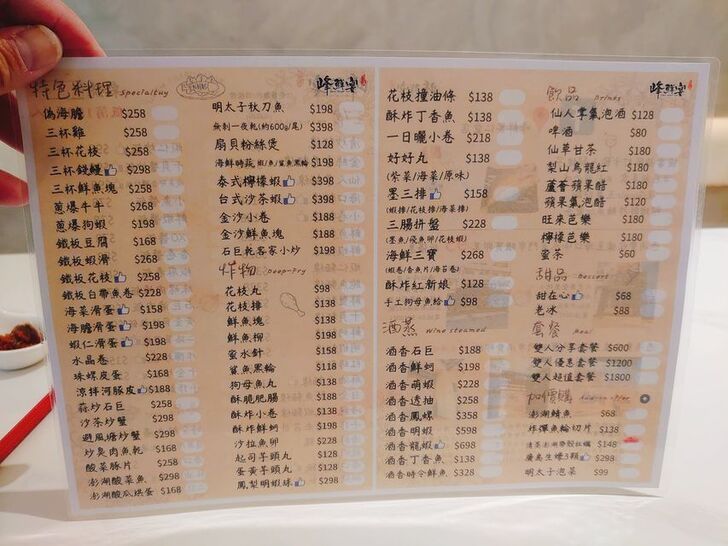 特色料理 Specialtuy
峰鮮宴
偽海膽 $258
三杯雞 $258
三杯花枝 $258
三杯錢鰻 $298
三杯鮮魚塊 $258
蔥爆牛牛 $268
蔥爆狗蝦 $198
鐵板豆腐 $168
鐵板蝦滑 $268
鐵板花枝 $258
鐵板白帶魚卷 $228
海菜滑蛋 $158
海膽滑蛋 $198
蝦仁滑蛋 $198
水晶卷 $228
珠螺皮蛋 $168
涼拌河豚皮 $188
蒜炒石巨 $258
沙茶炒蟹 $298
避風塘炒蟹 $298
炒炙肉魚乾 $168
酸菜豚片 $258
澎湖酸菜魚 $298
澎湖酸瓜烘蛋 $168
明太子秋刀魚 $198
無刺一夜乾(約600g/尾) $398
扇貝粉絲煲 $128
海鮮時蔬 蝦/魚/鯊魚黑輪 $198
泰式檸檬蝦 $398
台式沙茶蝦 $398
金沙小卷 $188
金沙鮮魚塊 $188
石巨乾客家小炒 $198
炸物 Deep-Fry
花枝丸 $98
花枝排 $138
鮮魚塊 $138
鮮魚柳 $198
蜜水針 $158
鯊魚黑輪 $118
狗母魚丸 $138
酥脆肥腸 $188
酥炸小卷 $138
酥炸鮮蚵 $198
沙拉魚卵 $228
起司芋頭丸 $128
蛋黃芋頭丸 $128
鳳梨明蝦球 $298
花枝撞油條 $138
酥炸丁香魚 $138
一日曬小卷 $218
好好丸 $138
(紫菜/海菜/原味)
墨三排 $158
(蝦排/花枝排/海菜排)
三腸拼盤 $228
(墨魚/飛魚卵/花枝蝦)
海鮮三寶 $268
(蝦卷/香魚片/海苔卷)
酥炸紅新娘 $128
手工狗母魚鬆 $98
酒蒸 Wine steamed
酒香石巨 $188
酒香鮮蚵 $198
酒香萌蝦 $228
酒香透抽 $258
酒香鳳螺 $358
酒香明蝦 $598
酒香龍蝦 $698
酒香丁香魚 $138
酒香時令鮮魚 $328
飲品 Drinks
峰鮮宴
仙人掌氣泡酒 $128
啤酒 $80
仙草甘茶 $180
梨山烏龍紅 $180
蘆薈蘋果醋 $180
蘋果氣泡醋 $120
旺來芭樂 $180
檸檬芭樂 $180
蜜茶 $60
甜品 Dessert
甜在心 $68
老冰 $88
套餐 Meal
雙人分享套餐 $600
雙人優惠套餐 $1200
雙人超值套餐 $1800
加價購 Add-on offer
澎湖鯖魚 $68
炸彈魚輪切片 $138
清蒸澎湖帶殼牡蠣 $148
廣島生蠔3顆 $298
明太子泡菜 $99